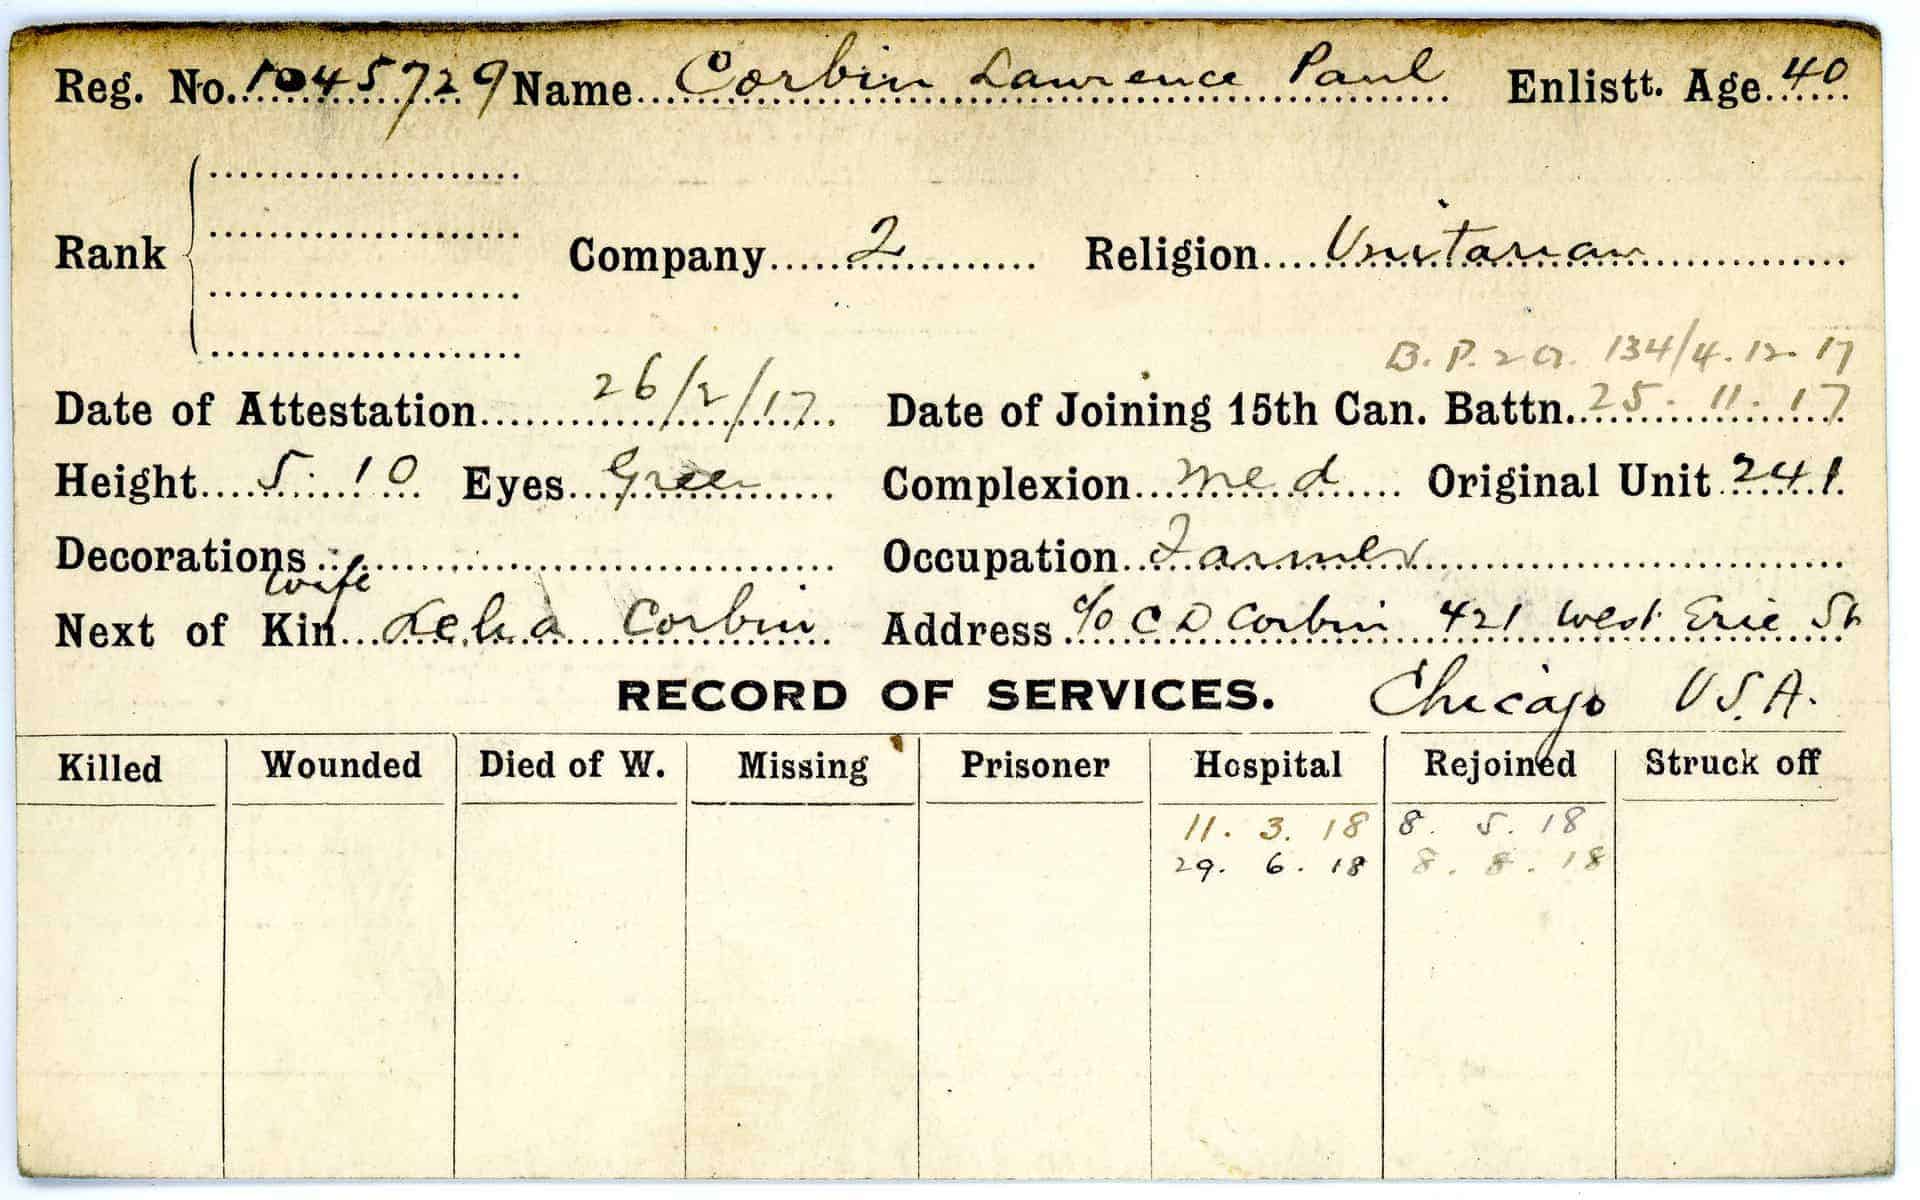 Reg. No. 1045729 Name Corbin Lawrence Paul Enlistt. Age 40
Rank Company 2 Religion Unitarian
B. P. 2 a. 134/4. 12. 17
Date of Attestation 26/2/17 Date of Joining 15th Can. Battn. 25. 11. 17
Height 5. 10 Eyes Green Complexion Med Original Unit 241
Decorations Occupation Farmer
wife
Next of Kin Corbin Address c/o C D Corbin 421 West Erie St
RECORD OF SERVICES. Chicago U.S.A.
Killed Wounded Died of W. Missing Prisoner Hospital Rejoined Struck off
11. 3. 18 8. 5. 18
29. 6. 18 8. 8. 18